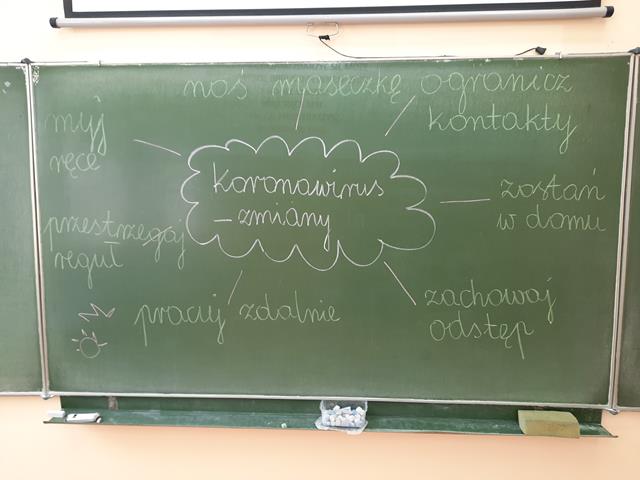 noś maseczkę ogranicz
kontakty
myj
ręce
Koronawirus
– zmiany
zostań
w domu
przestrzegaj
reguł
zachowaj
odstęp
pracuj zdalnie